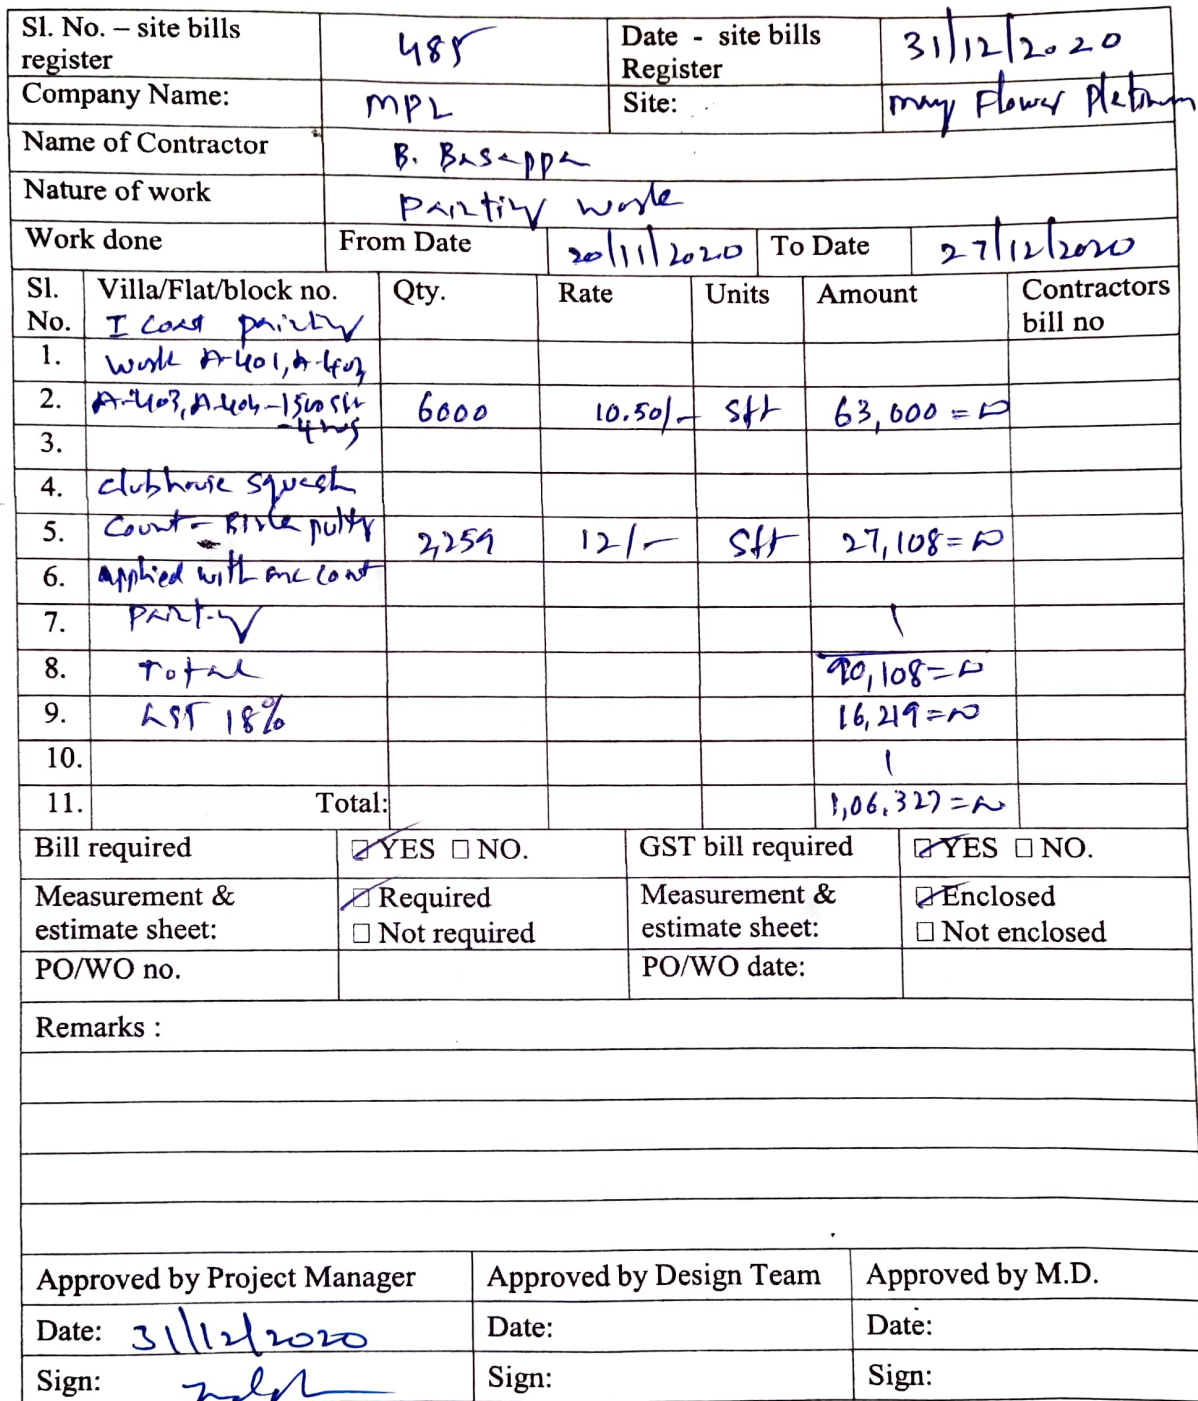 Sl. No. – site bills register 485 Date - site bills Register 31/12/2020
Company Name: MPL Site: may Flower Platinum
Name of Contractor B. Basappa
Nature of work Painting work
Work done From Date 20/11/2020 To Date 27/12/2020
Sl. No. Villa/Flat/block no. Qty. Rate Units Amount Contractors bill no
I coat painting
1. work A-401, A-402
2. A-403, A-404 - 1500 sft 6000 10.50/- sft 63,000=00
3.
4. clubhouse squash
5. Court - Birla putty 2,259 12/- sft 27,108=00
6. applied with one coat
7. Painting
8. Total 90,108=00
9. GST 18% 16,219=00
10.
11. Total: 1,06,327=00
Bill required ☑ YES ☐ NO. GST bill required ☑ YES ☐ NO.
Measurement & estimate sheet: ☑ Required ☐ Not required Measurement & estimate sheet: ☑ Enclosed ☐ Not enclosed
PO/WO no. PO/WO date:
Remarks :
Approved by Project Manager Approved by Design Team Approved by M.D.
Date: 31/12/2020 Date: Date:
Sign: Sign: Sign: